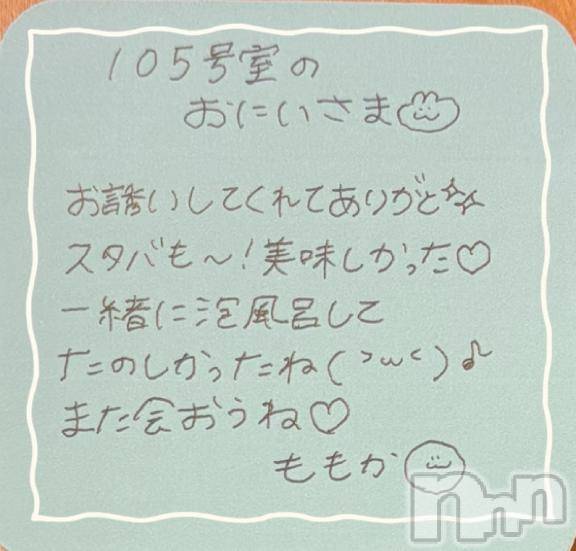 105号室の
おにいさま
お誘いしてくれてありがと☆☆
スタバも〜!美味しかった♡
一緒に泡風呂して
たのしかったね(>ω<)♪
また会おうね♡
ももか
nnn